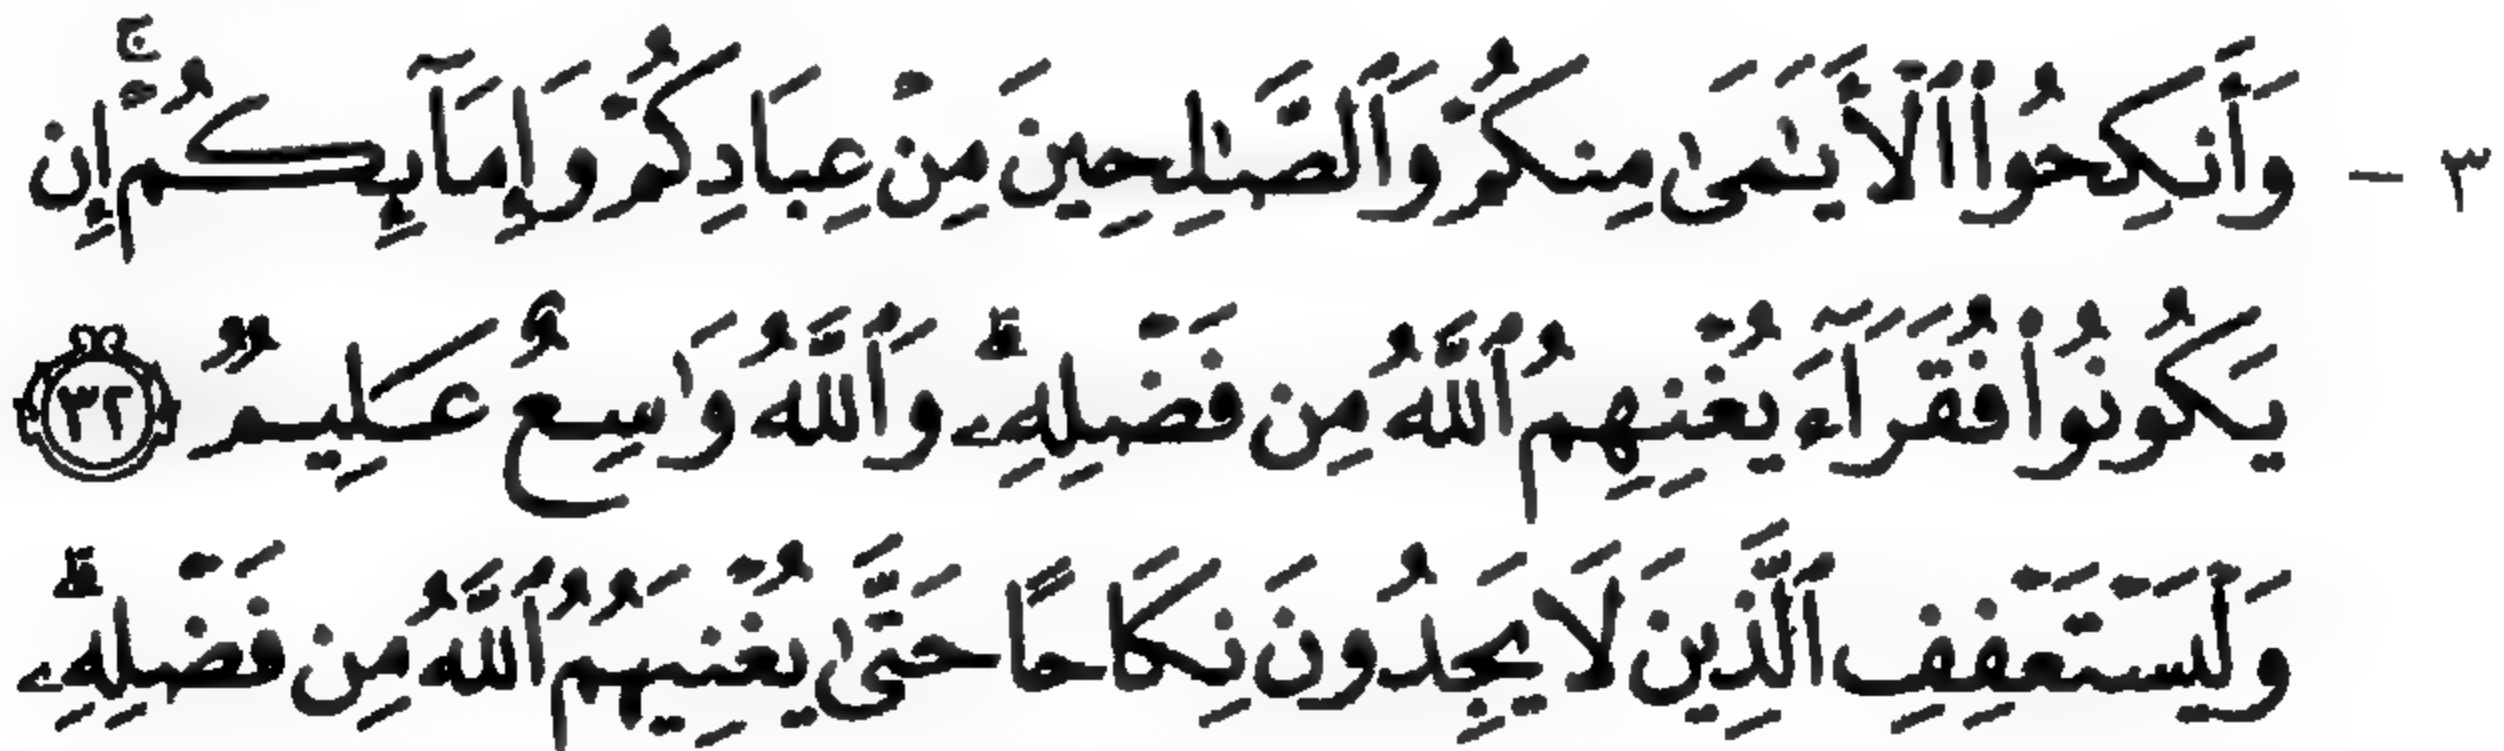 ٣ - وَأَنكِحُوا۟ ٱلْأَيَـٰمَىٰ مِنكُمْ وَٱلصَّـٰلِحِينَ مِنْ عِبَادِكُمْ وَإِمَآئِكُمْ ۚ إِن
يَكُونُوا۟ فُقَرَآءَ يُغْنِهِمُ ٱللَّهُ مِن فَضْلِهِۦ ۗ وَٱللَّهُ وَٰسِعٌ عَلِيمٌ ٣٢
وَلْيَسْتَعْفِفِ ٱلَّذِينَ لَا يَجِدُونَ نِكَاحًا حَتَّىٰ يُغْنِيَهُمُ ٱللَّهُ مِن فَضْلِهِۦ ۗ